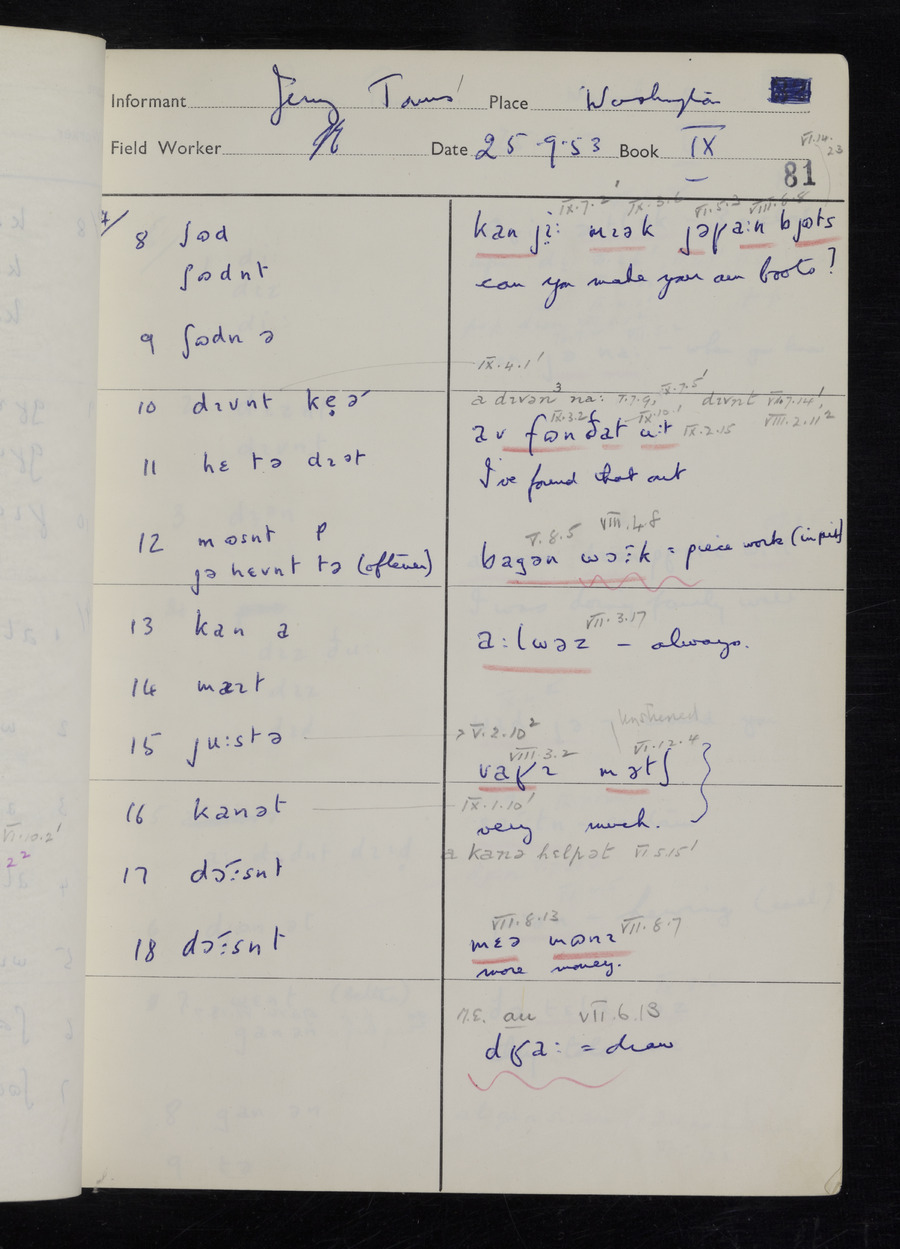 Informant Jerry Place Washington
Field Worker Date 25.9.53 Book IX
VI.14.23
81
7/
8 ʃəd
ʃədnt
9 ʃədn ə
10 dɪvnt kẹə
11 hɛ tə dɪət
12 məsnt P
jə hɛvnt tə (oftener)
13 kan a
14 maɪt
15 ju:stə
16 kanət
17 dɔ:snt
18 dɔ:snt
IX.7.2 IX.3.6 VI.5.3 VIII.6.8
kan ji: mɪək jəʁa:n bjəts
can you make your own boots?
IX.4.1
a dɪvən na: IX.7.5 dɪvnt VIII.2.11
IX.3.2 IX.10.1
av fən ðat u:t IX.2.15
I've found that out
V.8.5 VIII.4.8
bagən wɔ:k = piece work (in pit)
VII.3.17
a:lwəz – always.
V.2.10 unstressed
VIII.3.2 VI.12.4
vaʁɪ mətʃ
IX.1.10
very much.
a kanə helpət VI.5.15
VII.8.13 VII.8.7
mɛə mənɪ
more money.
n.e. au VII.6.13
dʁa: = draw
VI.10.2
22